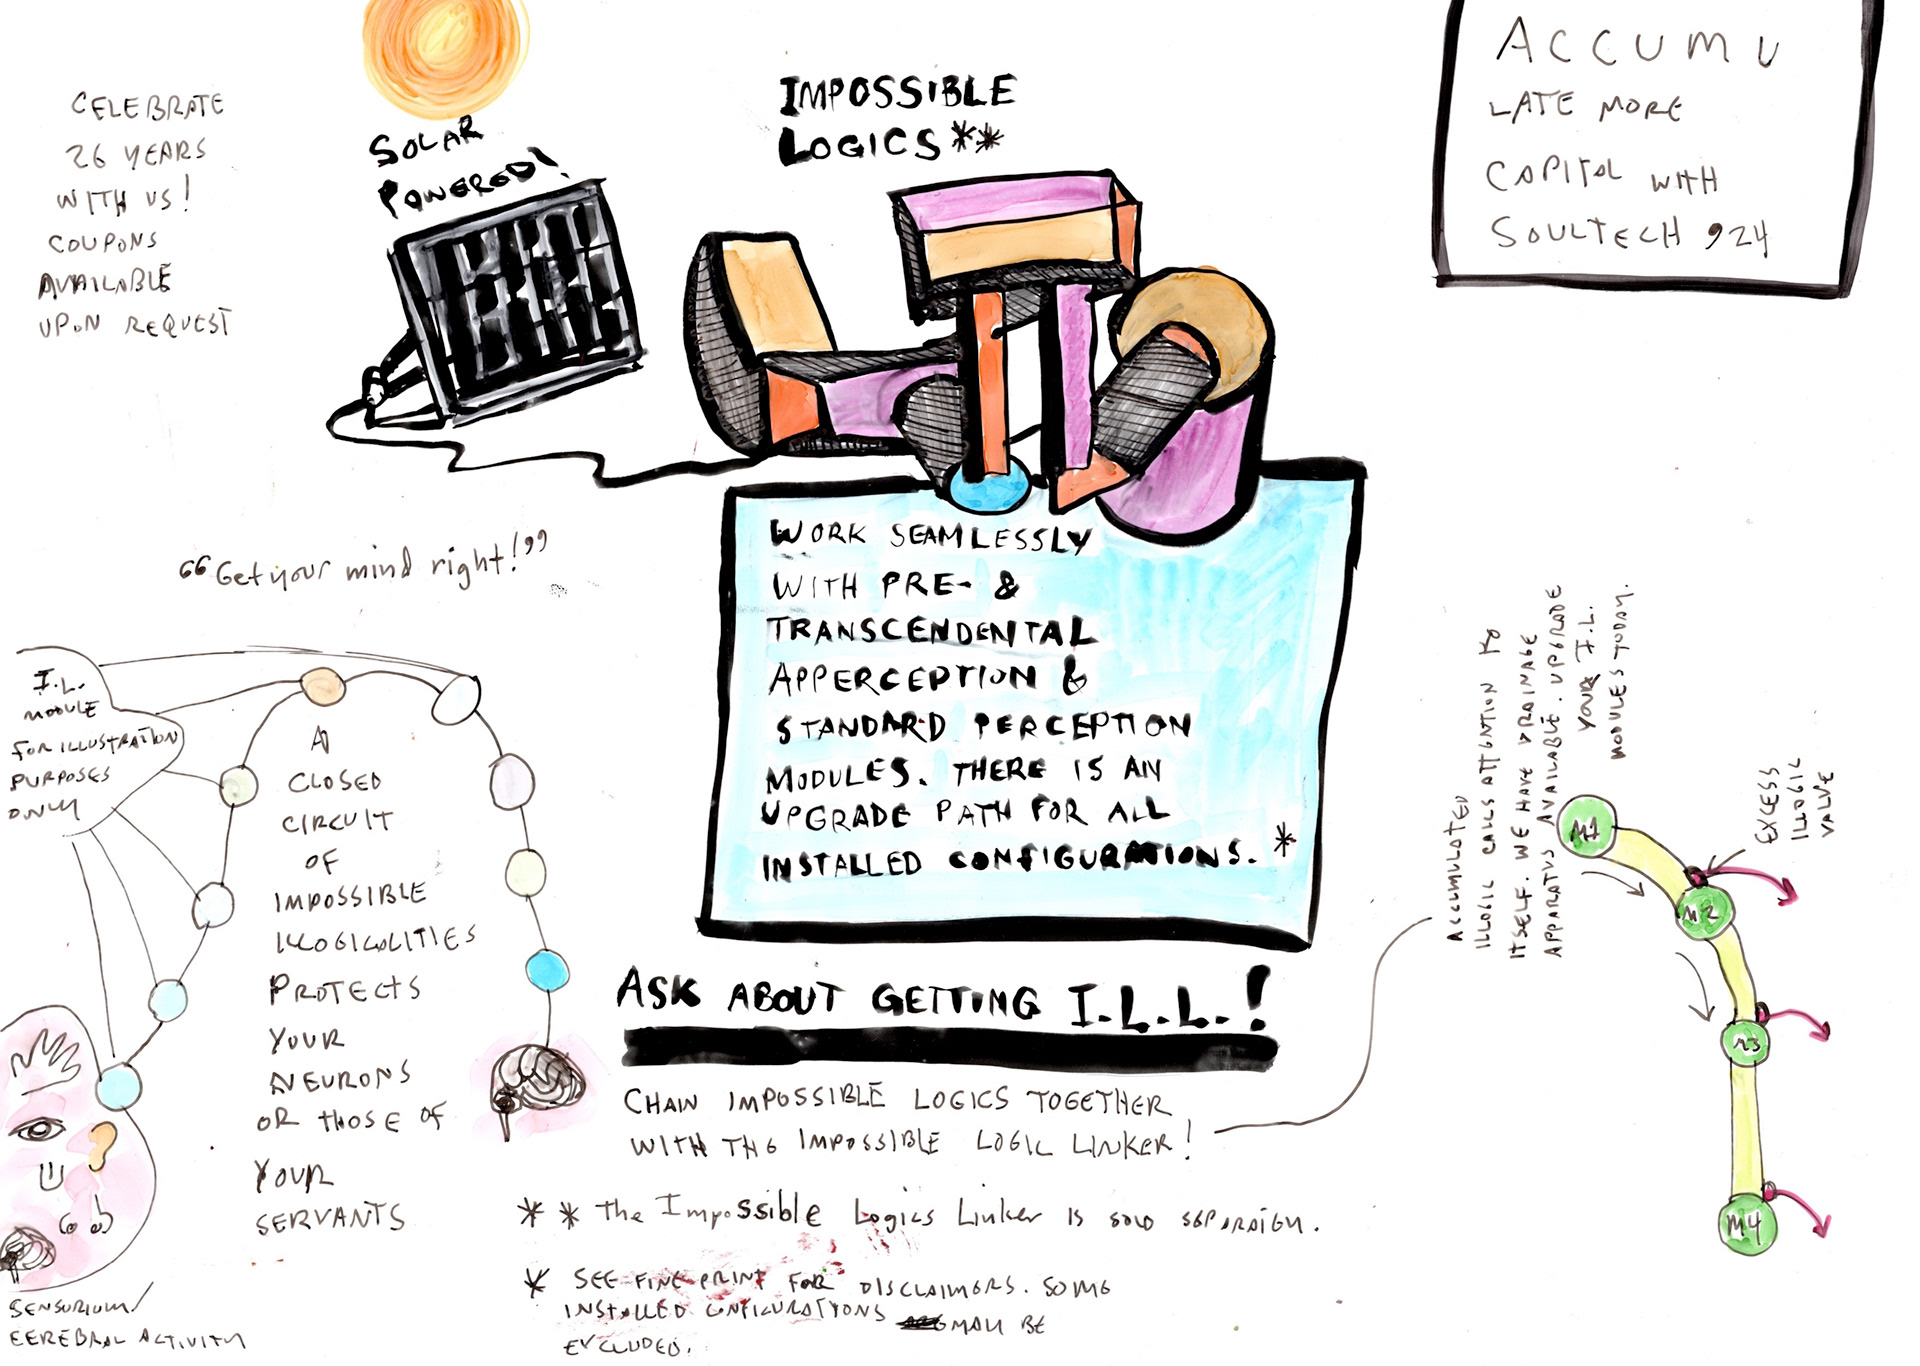 CELEBRATE
26 YEARS
WITH US!
COUPONS
AVAILABLE
UPON REQUEST
SOLAR
POWERED!
IMPOSSIBLE
LOGICS**
ACCUMU
LATE MORE
CAPITAL WITH
SOULTECH 924
"Get your mind right!"
WORK SEAMLESSLY
WITH PRE- &
TRANSCENDENTAL
APPERCEPTION &
STANDARD PERCEPTION
MODULES. THERE IS AN
UPGRADE PATH FOR ALL
INSTALLED CONFIGURATIONS. *
I.L.
MODULE
FOR ILLUSTRATION
PURPOSES
ONLY
A
CLOSED
CIRCUIT
OF
IMPOSSIBLE
ILLOGICALITIES
PROTECTS
YOUR
NEURONS
OR THOSE OF
YOUR
SERVANTS
SENSORIUM/
CEREBRAL ACTIVITY
ASK ABOUT GETTING I.L.L.!
CHAIN IMPOSSIBLE LOGICS TOGETHER
WITH THE IMPOSSIBLE LOGIC LINKER!
** The Impossible Logics Linker is sold separately.
* SEE FINE PRINT FOR DISCLAIMERS. SOME
INSTALLED CONFIGURATIONS MAY BE
EXCLUDED.
ACCUMULATED
ILLOGIC CALLS ATTENTION TO
ITSELF. WE HAVE DRAINAGE
APPARATUS AVAILABLE. UPGRADE
YOUR I.L.
MODULES TODAY.
EXCESS
ILLOGIC
VALVE
M1
M2
M3
M4